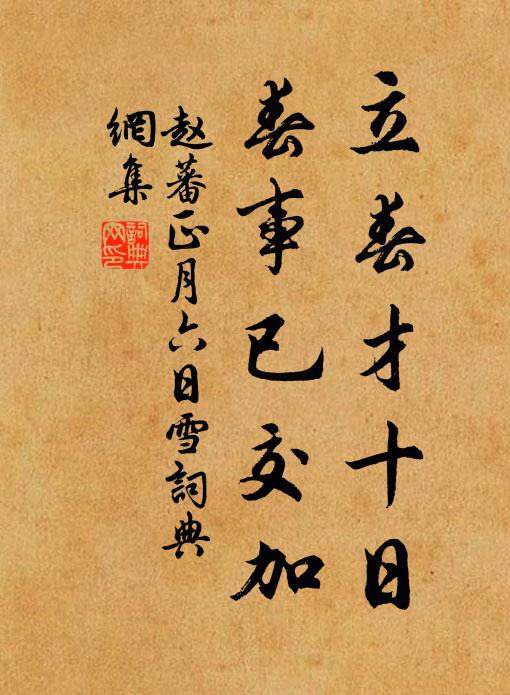 立春才十日
春事已交加
赵蕃正月六日雪詞典
網集
詞典
网印